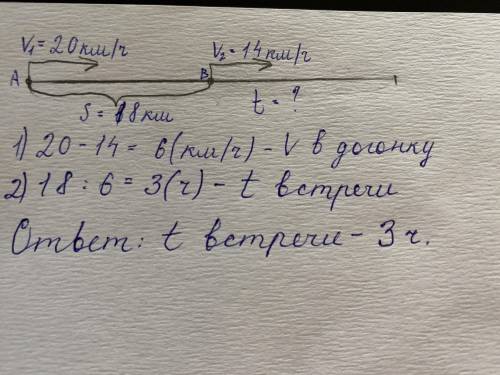 V₁ = 20 км/ч V₂ = 14 км/ч
A B
S = 18 км t = ?
1) 20 - 14 = 6 (км/ч) - V в догонку
2) 18 : 6 = 3 (ч) - t встречи
Ответ: t встречи - 3 ч.